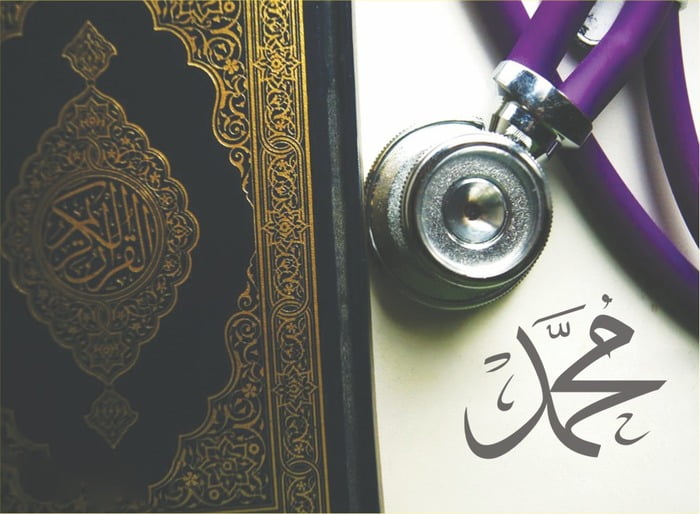 القرآن الكريم
مُحَمَّد